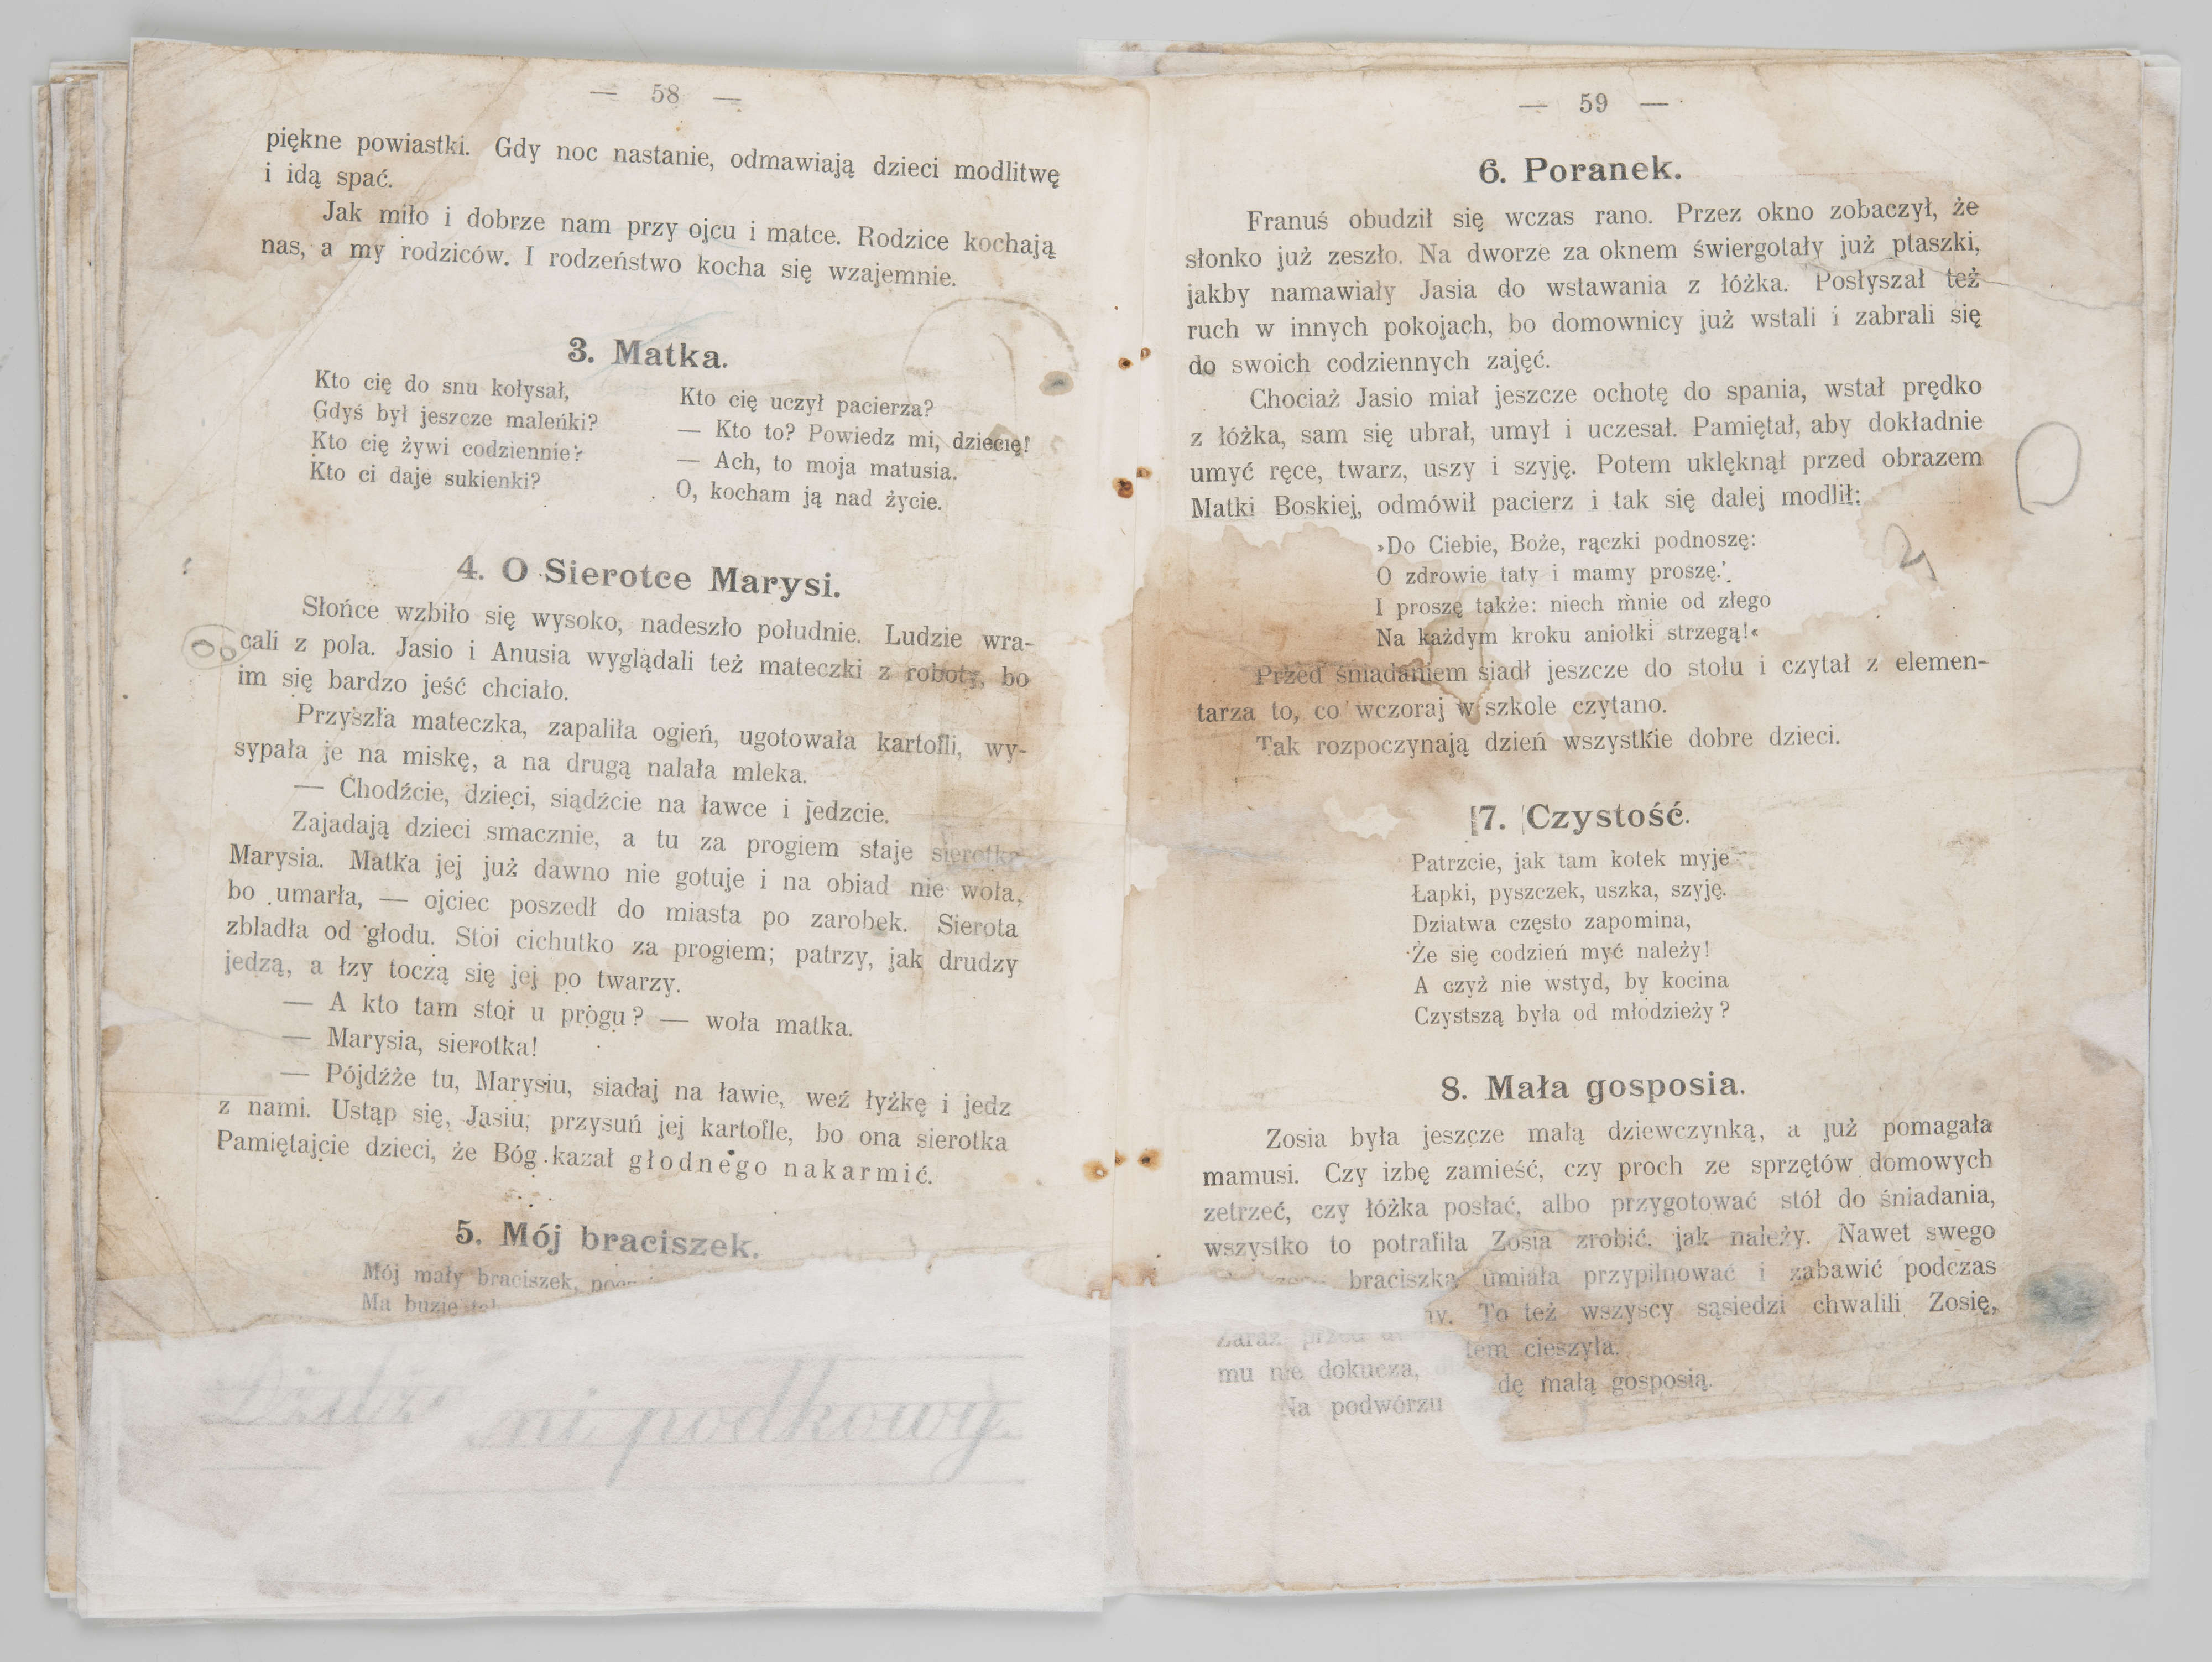 — 58 —
piękne powiastki. Gdy noc nastanie, odmawiają dzieci modlitwę
i idą spać.
Jak miło i dobrze nam przy ojcu i matce. Rodzice kochają
nas, a my rodziców. I rodzeństwo kocha się wzajemnie.
3. Matka.
Kto cię do snu kołysał,
Gdyś był jeszcze maleńki?
Kto cię żywi codziennie?
Kto ci daje sukienki?
Kto cię uczył pacierza?
— Kto to? Powiedz mi, dziecię!
— Ach, to moja matusia.
O, kocham ją nad życie.
4. O Sierotce Marysi.
Słońce wzbiło się wysoko, nadeszło południe. Ludzie wra-
cali z pola. Jasio i Anusia wyglądali też mateczki z roboty, bo
im się bardzo jeść chciało.
Przyszła mateczka, zapaliła ogień, ugotowała kartofli, wy-
sypała je na miskę, a na drugą nalała mleka.
— Chodźcie, dzieci, siądźcie na ławce i jedzcie.
Zajadają dzieci smacznie, a tu za progiem staje sierotka
Marysia. Matka jej już dawno nie gotuje i na obiad nie woła,
bo umarła, — ojciec poszedł do miasta po zarobek. Sierota
zbladła od głodu. Stoi cichutko za progiem; patrzy, jak drudzy
jedzą, a łzy toczą się jej po twarzy.
— A kto tam stoi u progu? — woła matka.
— Marysia, sierotka!
— Pójdźże tu, Marysiu, siadaj na ławie, weź łyżkę i jedz
z nami. Ustąp się, Jasiu, przysuń jej kartofle, bo ona sierotka
Pamiętajcie dzieci, że Bóg kazał głodnego nakarmić.
5. Mój braciszek.
Mój mały braciszek,
Ma buzię
ni podkowy.
— 59 —
6. Poranek.
Franuś obudził się wczas rano. Przez okno zobaczył, że
słonko już zeszło. Na dworze za oknem świergotały już ptaszki,
jakby namawiały Jasia do wstawania z łóżka. Posłyszał też
ruch w innych pokojach, bo domownicy już wstali i zabrali się
do swoich codziennych zajęć.
Chociaż Jasio miał jeszcze ochotę do spania, wstał prędko
z łóżka, sam się ubrał, umył i uczesał. Pamiętał, aby dokładnie
umyć ręce, twarz, uszy i szyję. Potem uklęknął przed obrazem
Matki Boskiej, odmówił pacierz i tak się dalej modlił:
»Do Ciebie, Boże, rączki podnoszę:
O zdrowie taty i mamy proszę.
I proszę także: niech mnie od złego
Na każdym kroku aniołki strzegą!«
Przed śniadaniem siadł jeszcze do stołu i czytał z elemen-
tarza to, co wczoraj w szkole czytano.
Tak rozpoczynają dzień wszystkie dobre dzieci.
7. Czystość.
Patrzcie, jak tam kotek myje
Łapki, pyszczek, uszka, szyję.
Dziatwa często zapomina,
Że się codzień myć należy!
A czyż nie wstyd, by kocina
Czystszą była od młodzieży?
8. Mała gosposia.
Zosia była jeszcze małą dziewczynką, a już pomagała
mamusi. Czy izbę zamieść, czy proch ze sprzętów domowych
zetrzeć, czy łóżka posłać, albo przygotować stół do śniadania,
wszystko to potrafiła Zosia zrobić, jak należy. Nawet swego
braciszka umiała przypilnować i zabawić podczas
To też wszyscy sąsiedzi chwalili Zosię,
Zaraz przed
tem cieszyła.
mu nie dokucza,
dę małą gosposią.
Na podwórzu